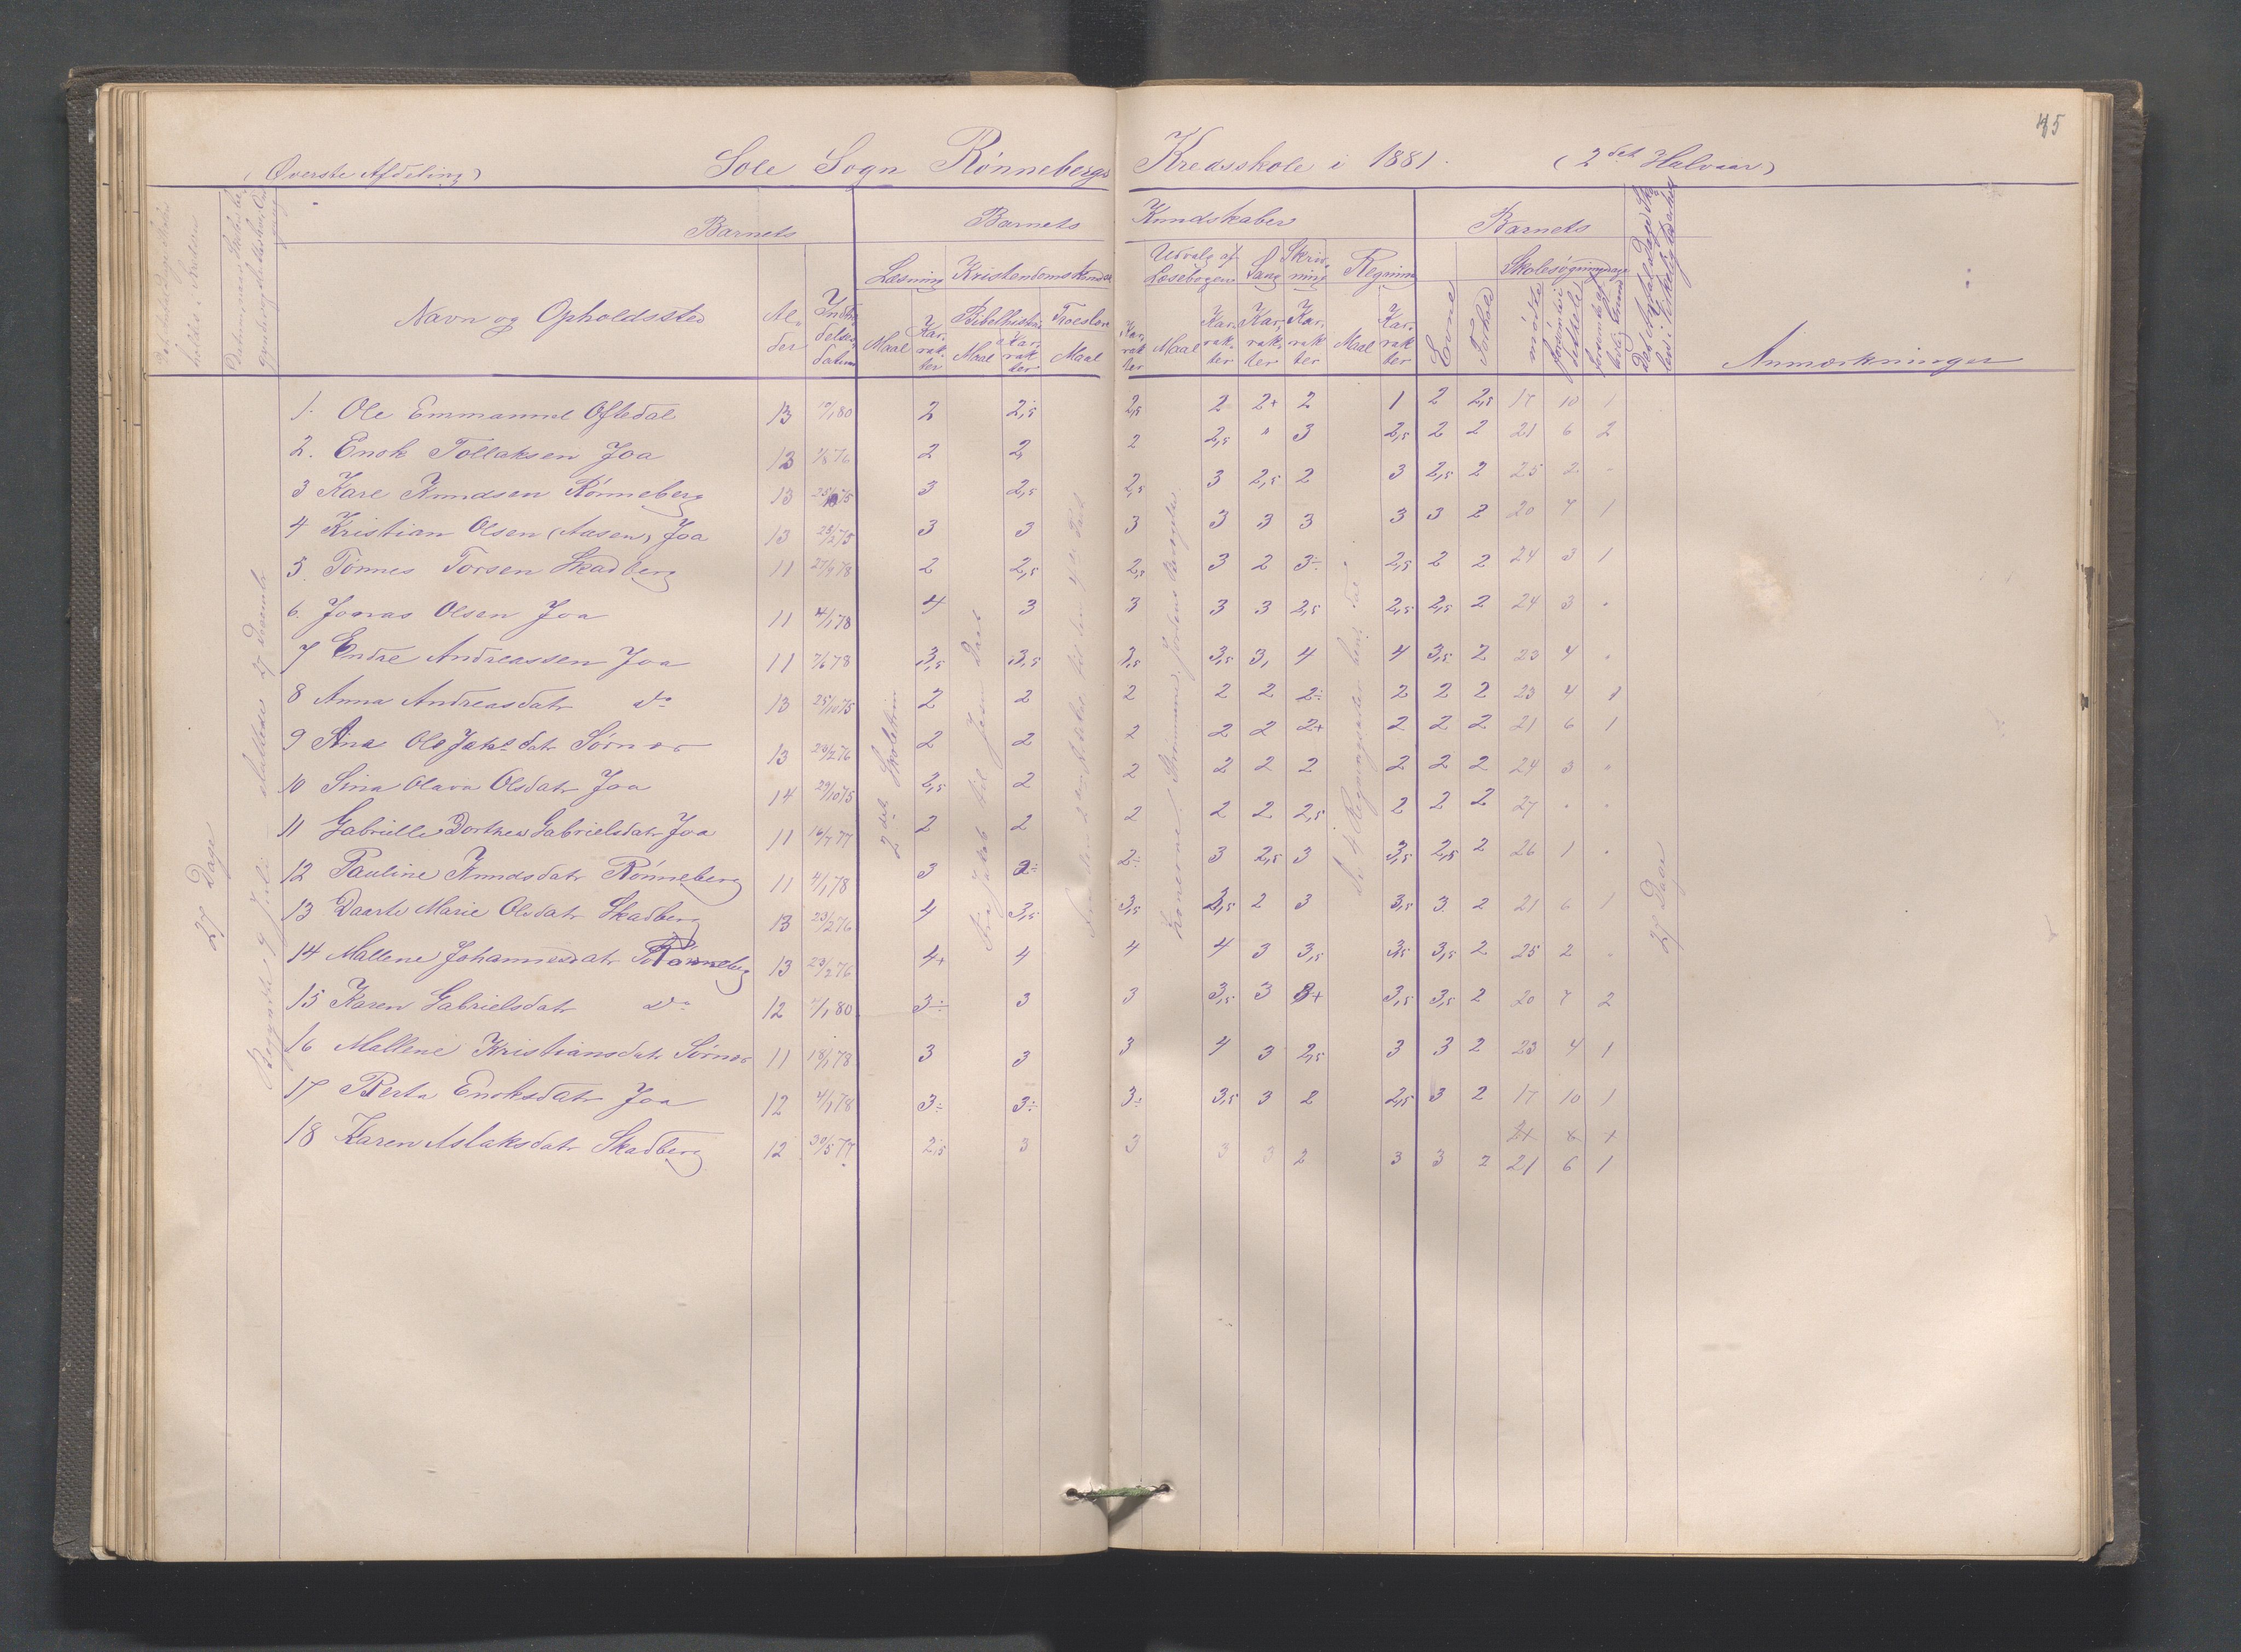 45
(Øverste Afdeling) Sole Sogn Rønnebergs Kredsskole i 1881. (2det Halvaar)
Barnets Barnets Kundskaber Barnets
Læsning Kristendomskundsk Udvalg af Læsebogen Sang Skrivning Regning Skolesøgningsdage
Navn og Opholdssted Alder Indtrædelsesdatum Maal Karakter Bibelhistorie Maal Karakter Troeslære Maal Karakter Maal Karakter Karakter Karakter Maal Karakter Evne Forhold mødte Anmærkninger
1. Ole Emmanuel Oftedal 13 10/1 80 2 2,5 2,5 2 2+ 2 1 2 2,5 17 10 1
2. Enok Tollaksen Joa 13 76 2 2 2 2,5 " 3 2,5 2 2 21 6 2
3 Kare Knudsen Rønneberg 13 75 3 2,5 2,5 3 2,5 2 3 2,5 2 25 2 "
4 Kristian Olsen (Aasen) Joa 13 75 3 3 3 3 3 3 3 3 2 20 7 1
5. Tønnes Torsen Skadberg 11 78 2 2,5 2,5 3 2 3÷ 2,5 2 2 24 3 1
6. Jonas Olsen Joa 11 4/1 78 4 3 3 3 3 2,5 2,5 2,5 2 24 3 "
7 Endre Andreassen Joa 11 78 3,5 3,5 3,5 3,5 3, 4 4 3,5 2 23 4 "
8 Anna Andreasdatr do 13 25/10 75 2 2 2 2 2 2÷ 2 2 2 23 4 1
9 Ana Ole Jakobsdatr Sørnes 13 23/2 76 2 2 2 2 2 2+ 2 2 2 21 6 1
10 Sina Olava Olsdatr Joa 14 29/10 75 2,5 2 2 2 2 2 2 2 2 24 3 "
11 Gabrielle Dorthea Gabrielsdatr Joa 11 16/7 77 2 2 2 2 2 2,5 2 2 2 27 " "
12 Pauline Knudsdatr Rønneberg 11 4/1 78 3 2÷ 2÷ 3 2,5 3 3,5 2,5 2 26 1 "
13 Daarte Marie Olsdatr Skadberg 13 23/2 76 4 3,5 3,5 3,5 2 3 3,5 3 2 21 6 1
14 Mallene Johannesdatr Rønneberg 13 23/2 76 4+ 4 4 4 3 3,5 3,5 3,5 2 25 2 "
15 Karen Gabrielsdatr do 12 80 3÷ 3 3 3,5 3 3+ 3,5 3,5 2 20 7 2
16 Mallene Kristiansdatr Sørnes 11 18/1 78 3 3 3 4 3 2,5 3 3 2 23 4 1
17 Berta Enoksdatr Joa 12 4/1 78 3÷ 3÷ 3÷ 3,5 3 2 2,5 3 2 17 10 1
18 Karen Aslaksdatr Skadberg 12 30/5 77 2,5 3 3 3 3 2 3 3 2 21 6 1
27 Dage
Begyndte 9 Juli sluttedes 27 Decemb
2det Skoletrin
Fra Jakob til Jesu Daab
Konerne
27 Dage